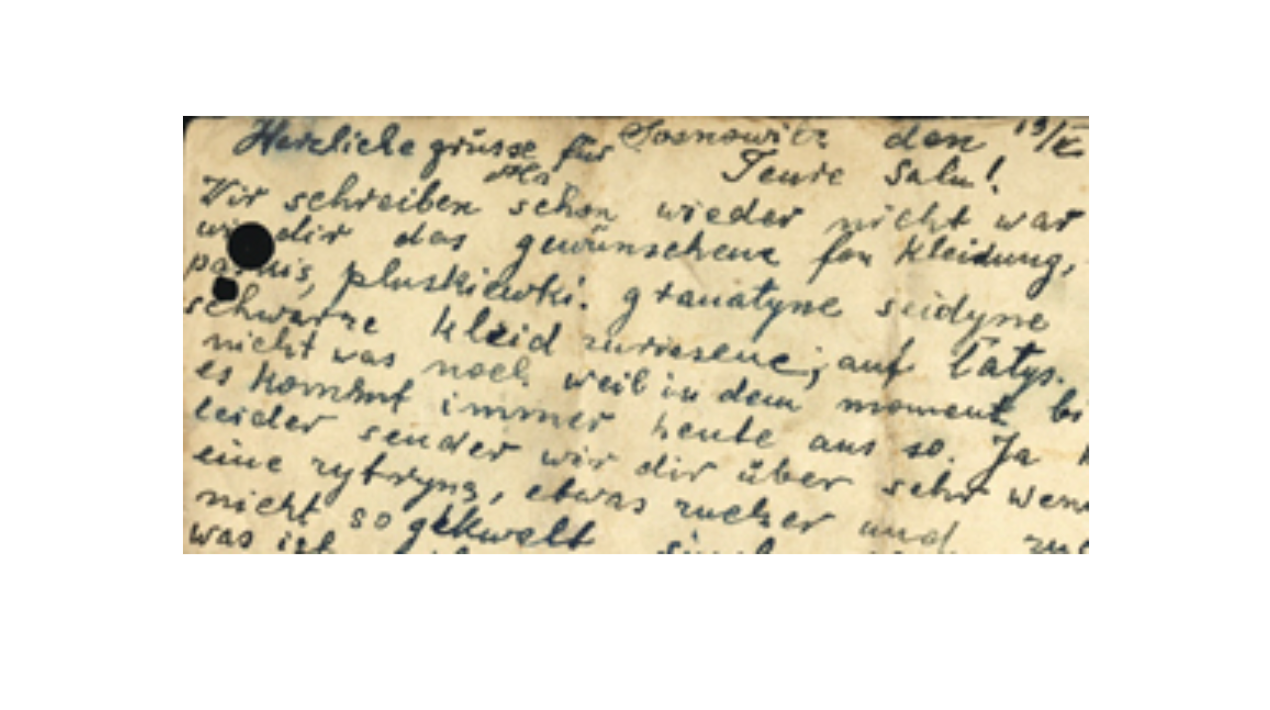 Herzliche grüsse für Sosnowitz den 19/
Teure Salu!
Wir schreiben schon wieder nicht war
dir das gewünschene fon Kleidung,
pluskiewki. granatyne seidyne
schwarze Kleid zuriesene, auf Latys.
nicht was noch weil in dem moment bi
es kommt immer heute aus so. Ja
leider sender wir dir über sehr wen
eine rytryng, etwas zucker und
nicht so gekwelt
was ich